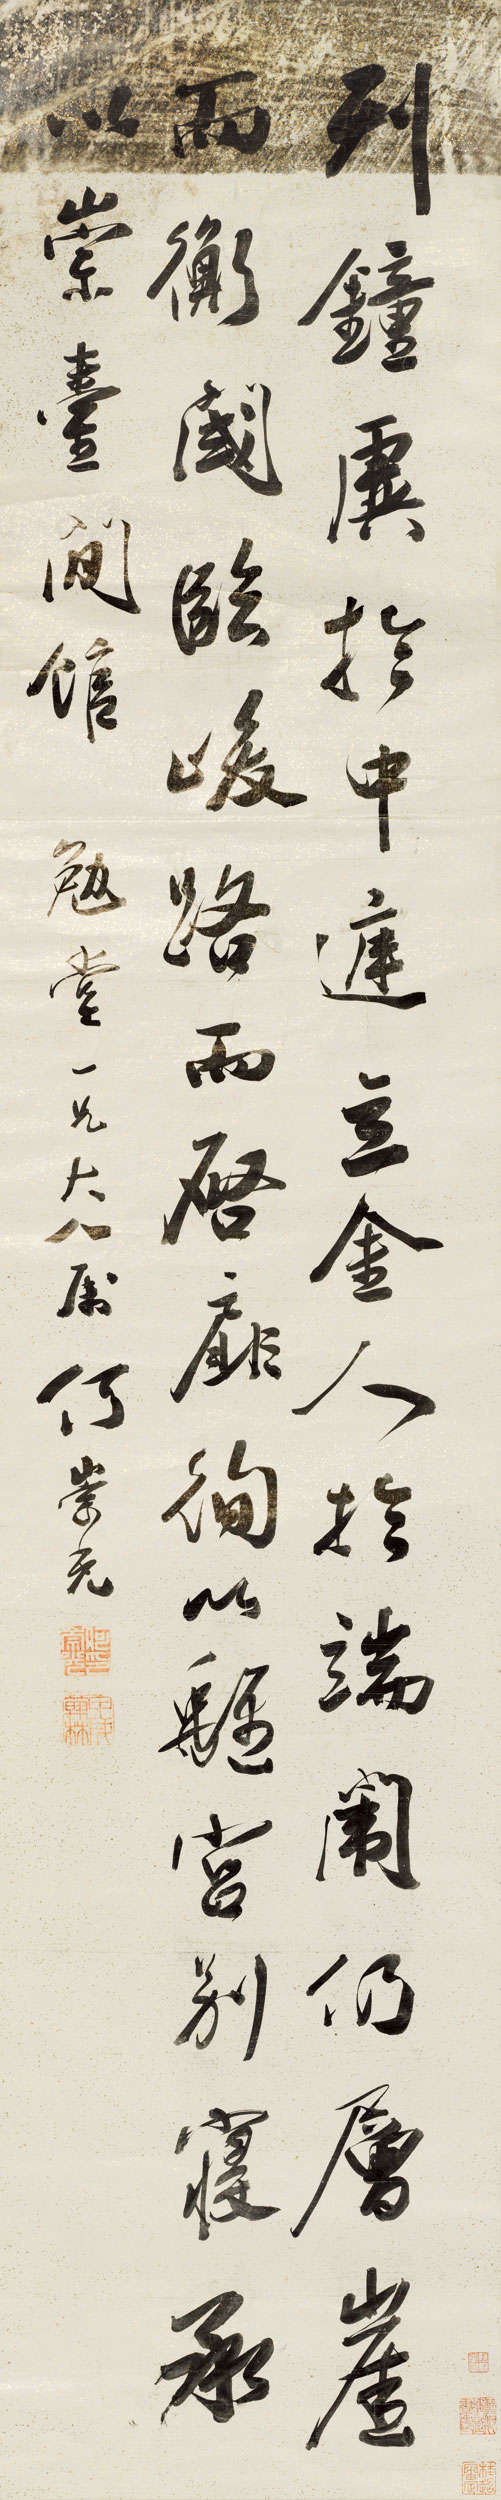 列鐘虡於中庭立金人於端闈仍層崖
而衡閾臨峻路而啓扉徇以離宮別寢承
以崇臺閒館 勉堂一兄大人屬何崇光